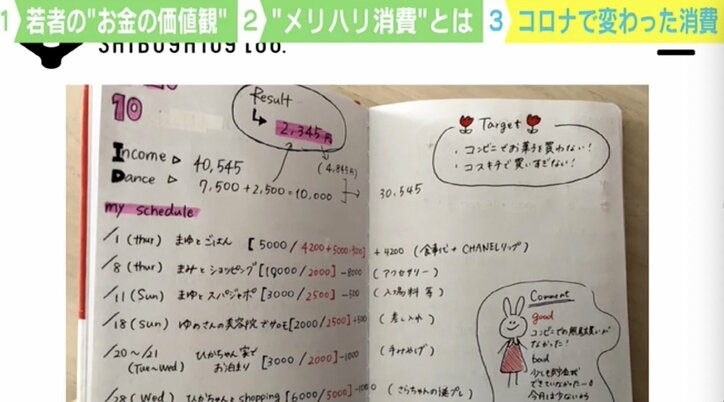 1 若者の"お金の価値観" 2 "メリハリ消費"とは 3 コロナで変わった消費
SHIBUYA109 Lab.
10
Result
↳ 2,345円
(4,845円)
Income ▷ 40,545
Dance ▷ 7,500 + 2,500 = 10,000
30,545
my schedule
/1 (thur) まゆとごはん [5000/4200+5000
/8 (thur) まみとショッピング [10000/2000] -8000
/11 (Sun) まゆとスパジャポ [3000/2500] -500
/18 (Sun) ゆめさんの美容院でサロモ [2000/2500] +500
/20〜/21 (Tue〜Wed) ひかちゃん家でお泊まり [3000/2000] -1000
/28 (Wed) ひかちゃんとshopping [6000/5000] -1000
Target
・コンビニでお菓子を買わない!
・コスキテで買いすぎない!
+4200 (食事代+CHANELリップ)
(アクセサリー)
(入場料 等)
(差し入れ)
(手みやげ)
(さらちゃんの誕プレ)
Comment
good
コンビニでの無駄遣いが
なかった!
bad
少しも貯金が
できていなかった
今月は少ないから